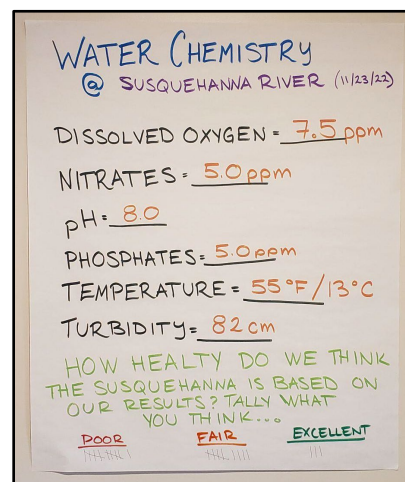 WATER CHEMISTRY
@ SUSQUEHANNA RIVER (11/23/22)
DISSOLVED OXYGEN = 7.5 ppm
NITRATES = 5.0 ppm
pH = 8.0
PHOSPHATES = 5.0 ppm
TEMPERATURE = 55°F/13°C
TURBIDITY = 82 cm
HOW HEALTY DO WE THINK
THE SUSQUEHANNA IS BASED ON
OUR RESULTS? TALLY WHAT
YOU THINK...
POOR FAIR EXCELLENT